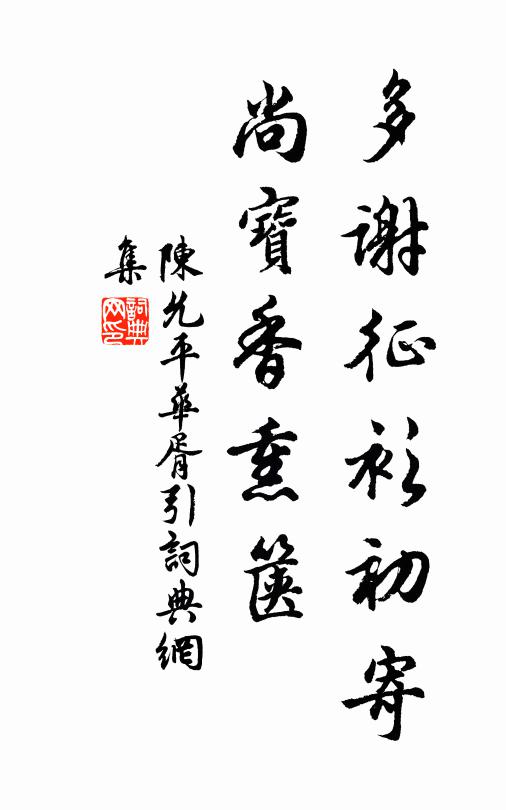 多謝征衫初寄
尚寶香熏篋
陳允平華胥引詞典網
集
詞典网印